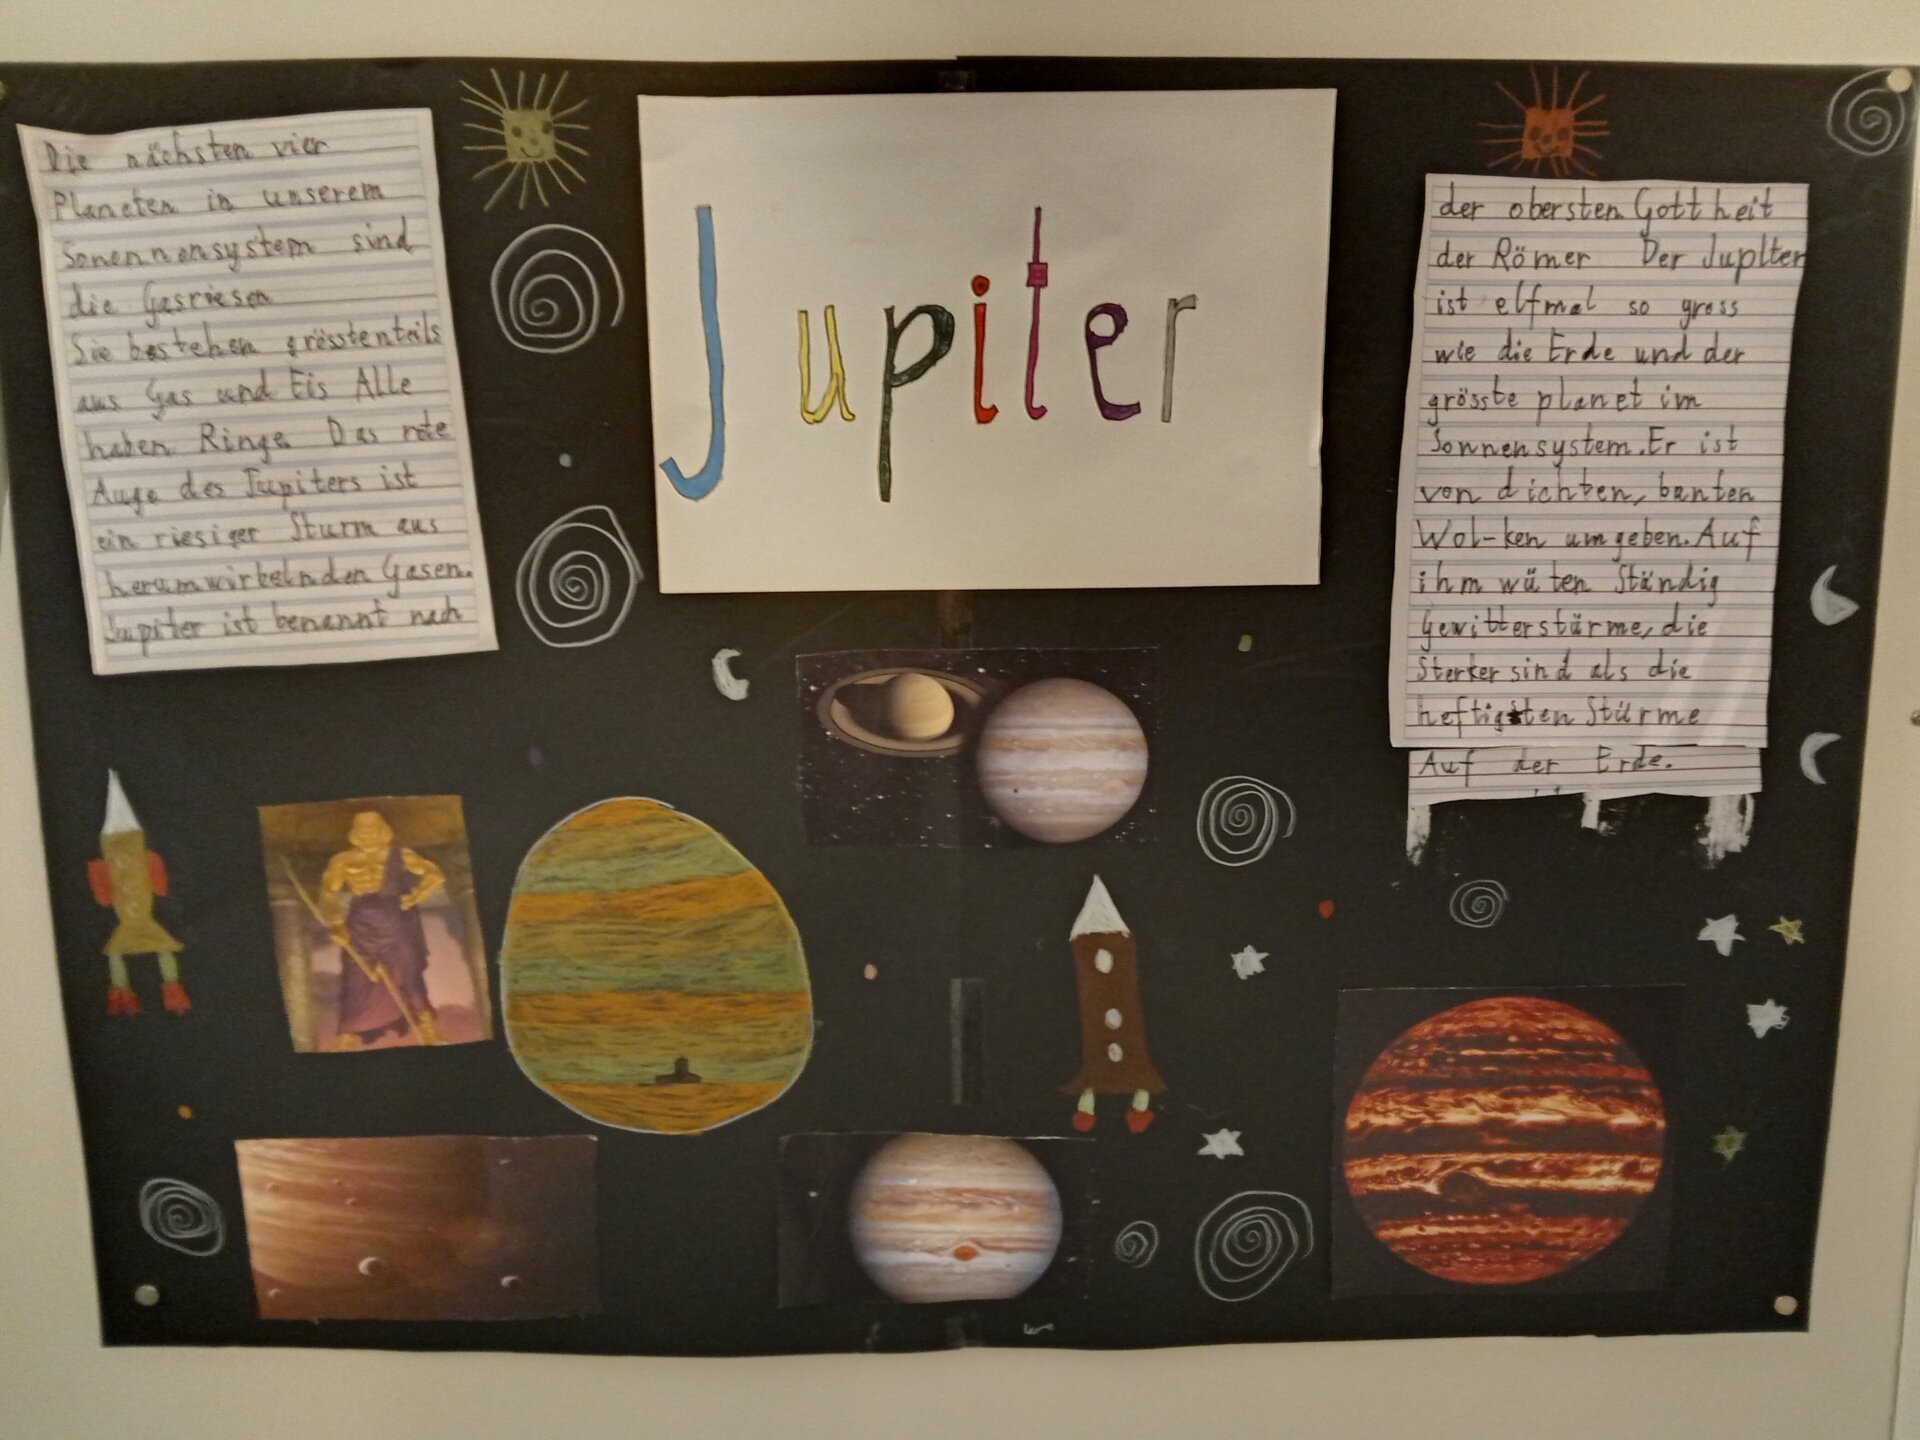 Die nächsten vier
Planeten in unserem
Sonennensystem sind
die Gasriesen
Sie bestehen grösstenteils
aus Gas und Eis Alle
haben Ringe. Das rote
Auge des Jupiters ist
ein riesiger Sturm aus
herumwirbelnden Gasen.
Jupiter ist benannt nach
Jupiter
der obersten Gottheit
der Römer Der JupIter
ist elfmal so gross
wie die Erde und der
grösste planet im
Sonnensystem. Er ist
von dichten, bunten
Wol-ken umgeben. Auf
ihm wüten Ständig
Gewitterstürme, die
Sterker sind als die
heftigsten Stürme
Auf der Erde.